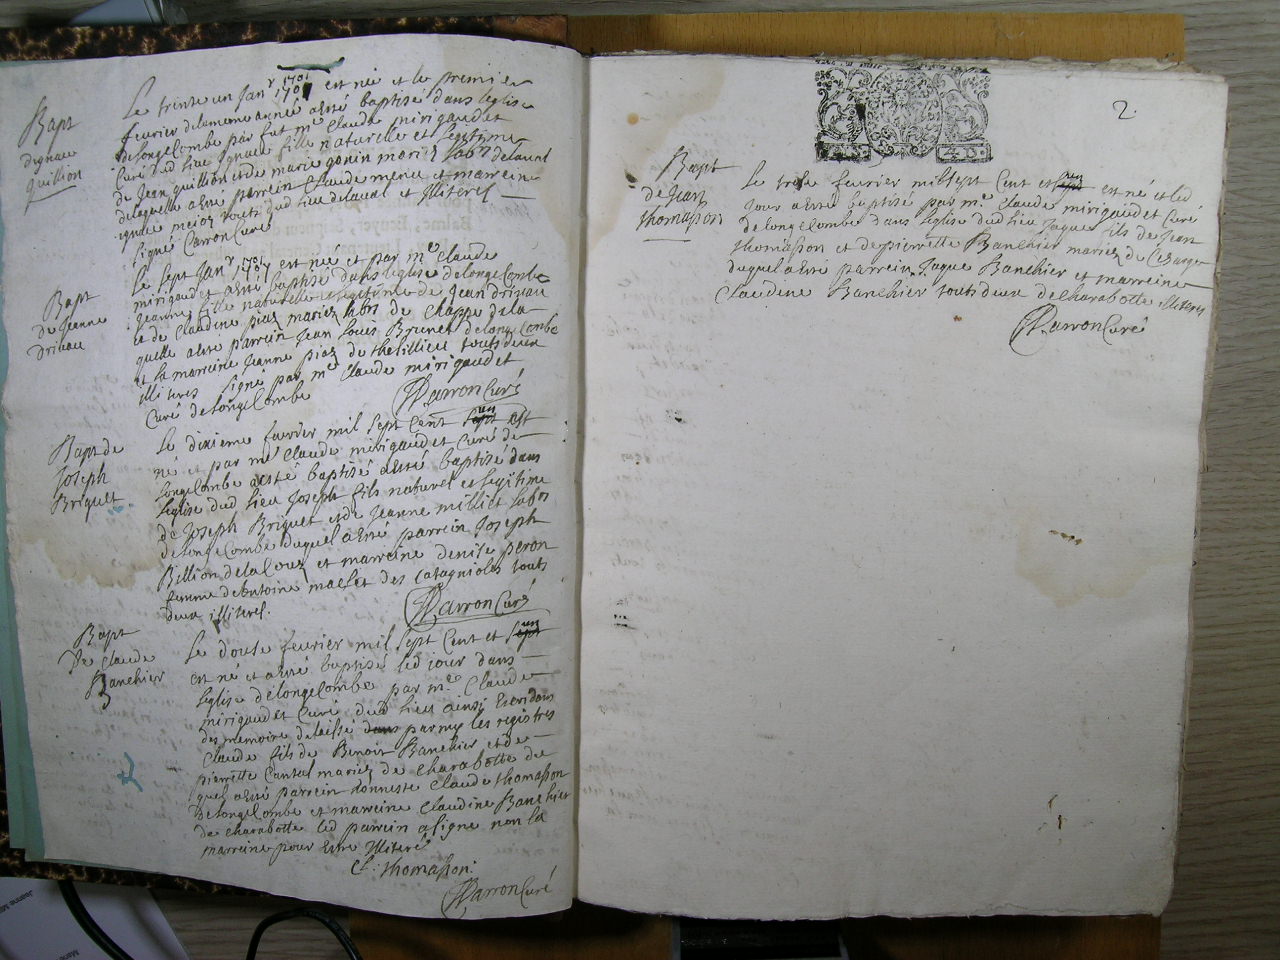 Bapt
dignace
quillion
Le trente un Janr 1701 est née et le premier
fevrier de la meme année a esté baptisé dans leglise
de longeCombe par fut mre Claude mirigaudet
Curé dud lieu Ignace fille naturelle et legitime
de Jean quillion et de marie gonin mariez labrs delaval
delaquelle a esté parrein Claude et marreine
ignace touts dud lieu delaval et Illiterés
signé Carron Curé
Bapt
de Jeanne
Drineau
Le sept Janr 1701 est née et par mre Claude
mirigaudet a esté baptisé dans leglise de longeCombe
Jeanne fille naturelle et legitime de Jean Drineau
et de Claudine piaz mariez labrs de Chappe de la
quelle a esté parrein Jean louis Brunet de longeCombe
et la marreine Jeanne piaz de thesillieu touts deux
illiteres signé par mre Claude mirigaudet
Curé de longeCombe
Carron Curé
Bapt de
Joseph
Briquet
Le dixieme fevrier mil sept Cent sept un est
né et par mre Claude mirigaudet Curé de
longeCombe a esté baptisé a esté baptisé dans
leglise dud lieu Joseph fils naturel et legitime
de Joseph Briquet et de Jeanne milliet labrs
de longeCombe duquel a esté parrein Joseph
Billion dela Couz et marreine denise peron
femme de Antoine maclet des Catagnioles touts
deux illiteres.
Carron Curé
Bapt
De Claude
Banchier
Le douse fevrier mil sept Cent et sept un
est né et a esté baptisé led jour dans
leglise de longeCombe par mre Claude
mirigaudet Curé dud lieu ainsi Escri dans
des memoire deleissé dans parmy les registres
Claude fils de Benoit Banchier et de
pierrette Cantal mariez de Charabotte du
quel a esté parrein honneste Claude thomasson
de longeCombe et marreine Claudine Banchier
de charabotte led parrein a signé non la
marreine pour Estre Illiteré
Cl. thomasson.
Carron Curé
2.
Bapt
de Jean
thomasson
Le trese fevrier mil sept Cent et sept un est né et led
Jour a esté baptisé par mre Claude mirigaudet Curé
de longeCombe dans leglise dud lieu Jaque fils de Jean
thomasson et de pierrette Banchier mariez du Cesarge
duquel a esté parrein Jaque Banchier et marreine
Claudine Banchier touts deux de Charabotte Illiteres
Carron Curé